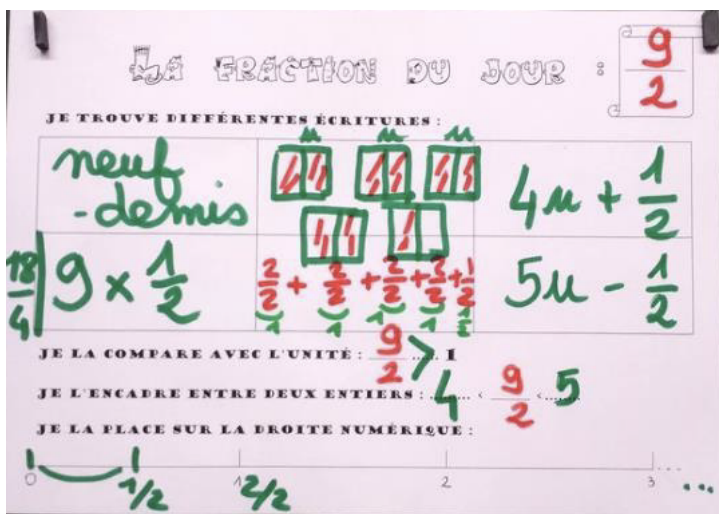 LA FRACTION DU JOUR : 9/2
JE TROUVE DIFFÉRENTES ÉCRITURES :
u u u
neuf
-demis
4u + 1/2
18/4
9 × 1/2
2/2 + 2/2 + 2/2 + 2/2 + 1/2
1 1 1 1 1/2
5u - 1/2
JE LA COMPARE AVEC L'UNITÉ : 9/2 > 1
JE L'ENCADRE ENTRE DEUX ENTIERS : 4 < 9/2 < 5
JE LA PLACE SUR LA DROITE NUMÉRIQUE :
0 1 2 3 ...
1/2 2/2 ...